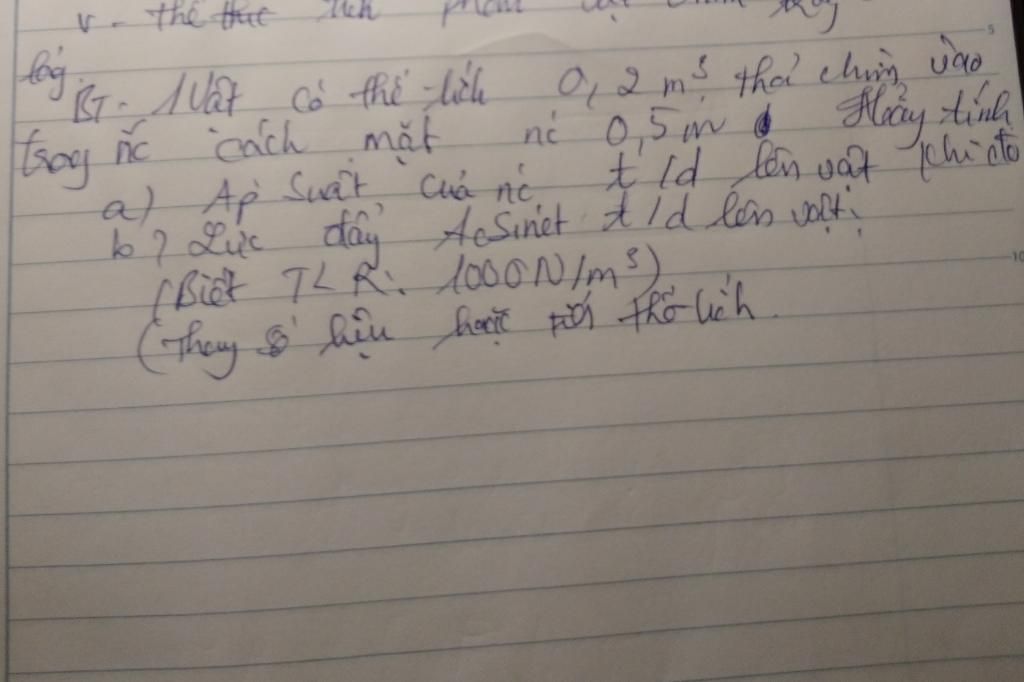 V - thể thức tích phần
lỏg.
BT - 1 Vật có thể tích 0,2 m³ thả chìm vào
trog nc cách mặt nc 0,5m Hãy tính
a) Áp suất của nc t/d lên vật khi đó
b? Lực đẩy AcSinét t/d lên vật.
(Biết TLR: 1000N/m³)
(Thay số hiệu hoặc thể tích.